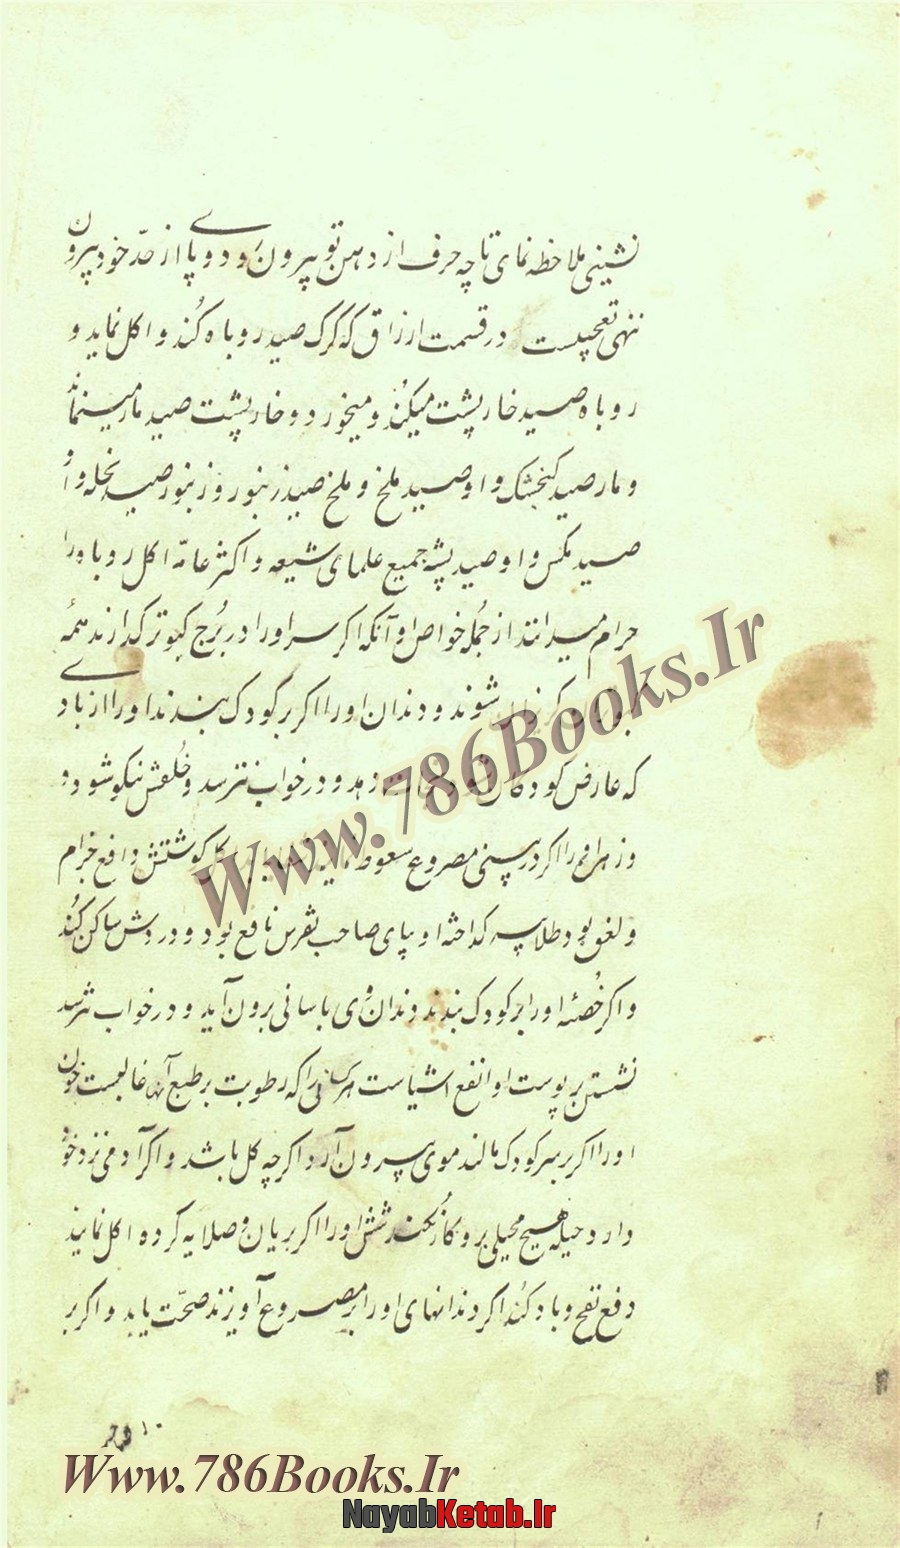 نشینی ملاحظه نمای تا چه حرف از دهن تو بیرون رود و پا از حدّ خود بیرون
ننهی تعجیست در قسمت ارزاق که کرک صید روباه کند و اکل نماید و
روباه صید خارپشت میکند و میخورد و خارپشت صید مار مینماید
و مار صید کنجشک و او صید ملخ و ملخ صید زنبور و زنبور صید نحله و او
صید مکس و او صید پشه جمیع علمای شیعه و اکثر عامّه اکل روباه را
حرام میدانند از جمله خواص او آنکه اکر سر او را در برج کبوتر کذارند همهٔ
شوند و دندان او را اکر بر کودک بندند او را از بادی
که عارض کودکان شود نجات دهد و در خواب نترسد و خلقش نیکو شود و
و زهرهٔ او را اکر در بینی مصروع سعوط کوشتش واقع خرام
و لغو بود طلا پیه کداخته او بپای صاحب نقرس نافع بود و دردش ساکن کند
و اکر خصیه او را بر کودک بندند دندان وی باسانی برون آید و در خواب نترسد
نشستن بر پوست او انفع اشیاست را که رطوبت بر طبع آنها غالبست خون
او را اکر بر سر کودک مالند موی بیرون آرد اکرچه کل باشد و اکر آدمی نزد خود
دارد حیله هیچ محیلی برو کار نکند شش او را اکر بریان و صلایه کرده اکل نمایند
دفع نفخ و باد کند اکر دندانهای او را بر مصروع آویزند صحّت یابد و اکر بر
Www.786Books.Ir
Www.786Books.Ir
NayabKetab.Ir